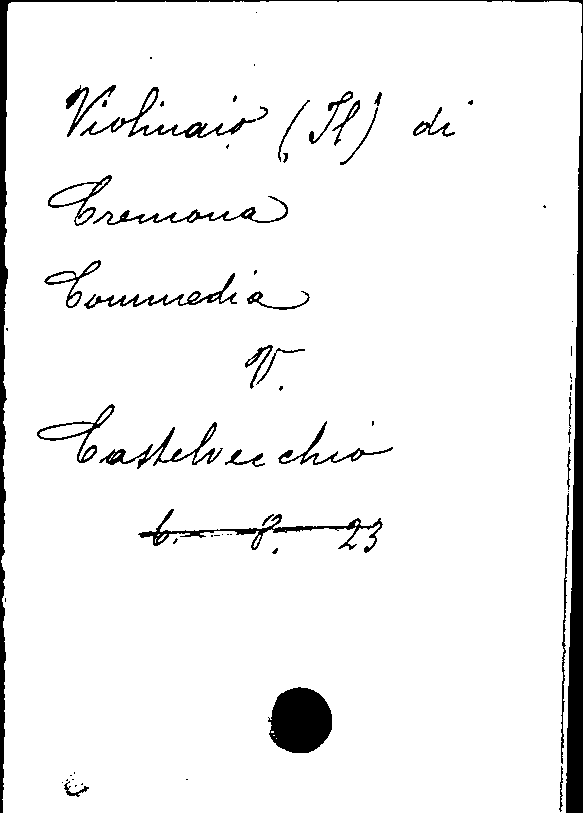 Violinaio (Il) di
Cremona
Commedia
V.
Castelvecchio
6. 8. 23